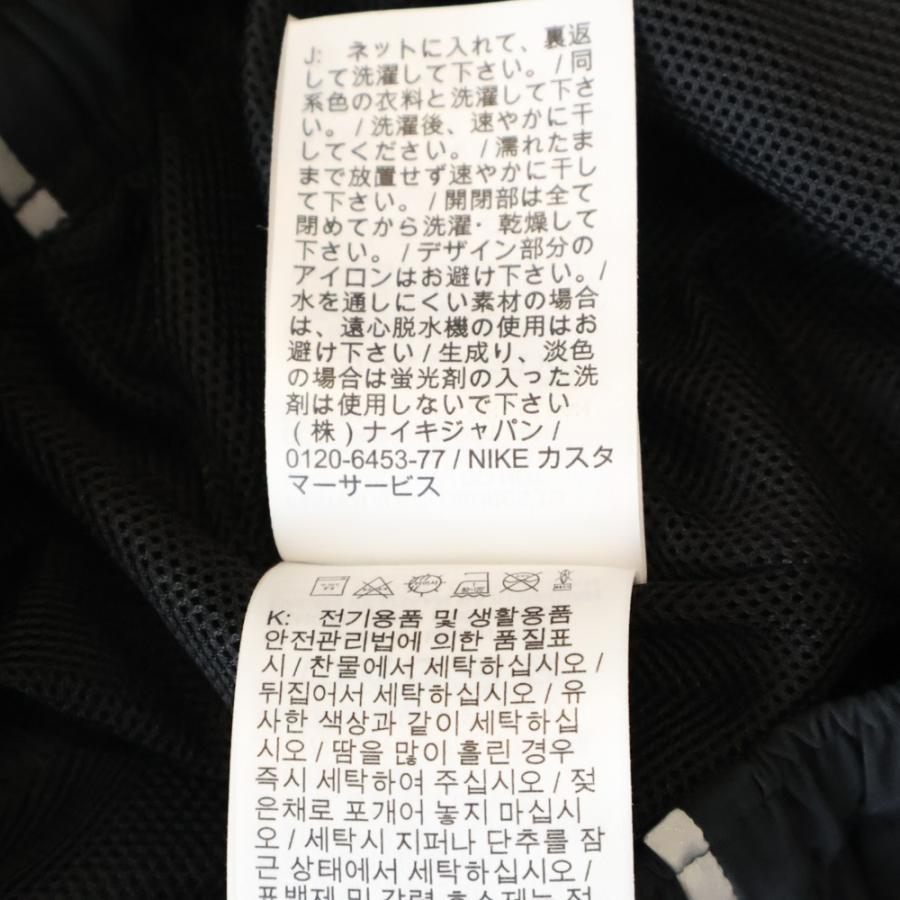 J: ネットに入れて、裏返
して洗濯して下さい。/ 同
系色の衣料と洗濯して下さ
い。/ 洗濯後、速やかに干
してください。/ 濡れたま
まで放置せず速やかに干し
て下さい。/ 開閉部は全て
閉めてから洗濯・乾燥して
下さい。/ デザイン部分の
アイロンはお避け下さい。/
水を通しにくい素材の場合
は、遠心脱水機の使用はお
避け下さい / 生成り、淡色
の場合は蛍光剤の入った洗
剤は使用しないで下さい
(株) ナイキジャパン /
0120-6453-77 / NIKE カスタ
マーサービス
K: 전기용품 및 생활용품
안전관리법에 의한 품질표
시 / 찬물에서 세탁하십시오 /
뒤집어서 세탁하십시오 / 유
사한 색상과 같이 세탁하십
시오 / 땀을 많이 흘린 경우
즉시 세탁하여 주십시오 / 젖
은채로 포개어 놓지 마십시
오 / 세탁시 지퍼나 단추를 잠
근 상태에서 세탁하십시오 /
표백제 및 강력 효소제는 적